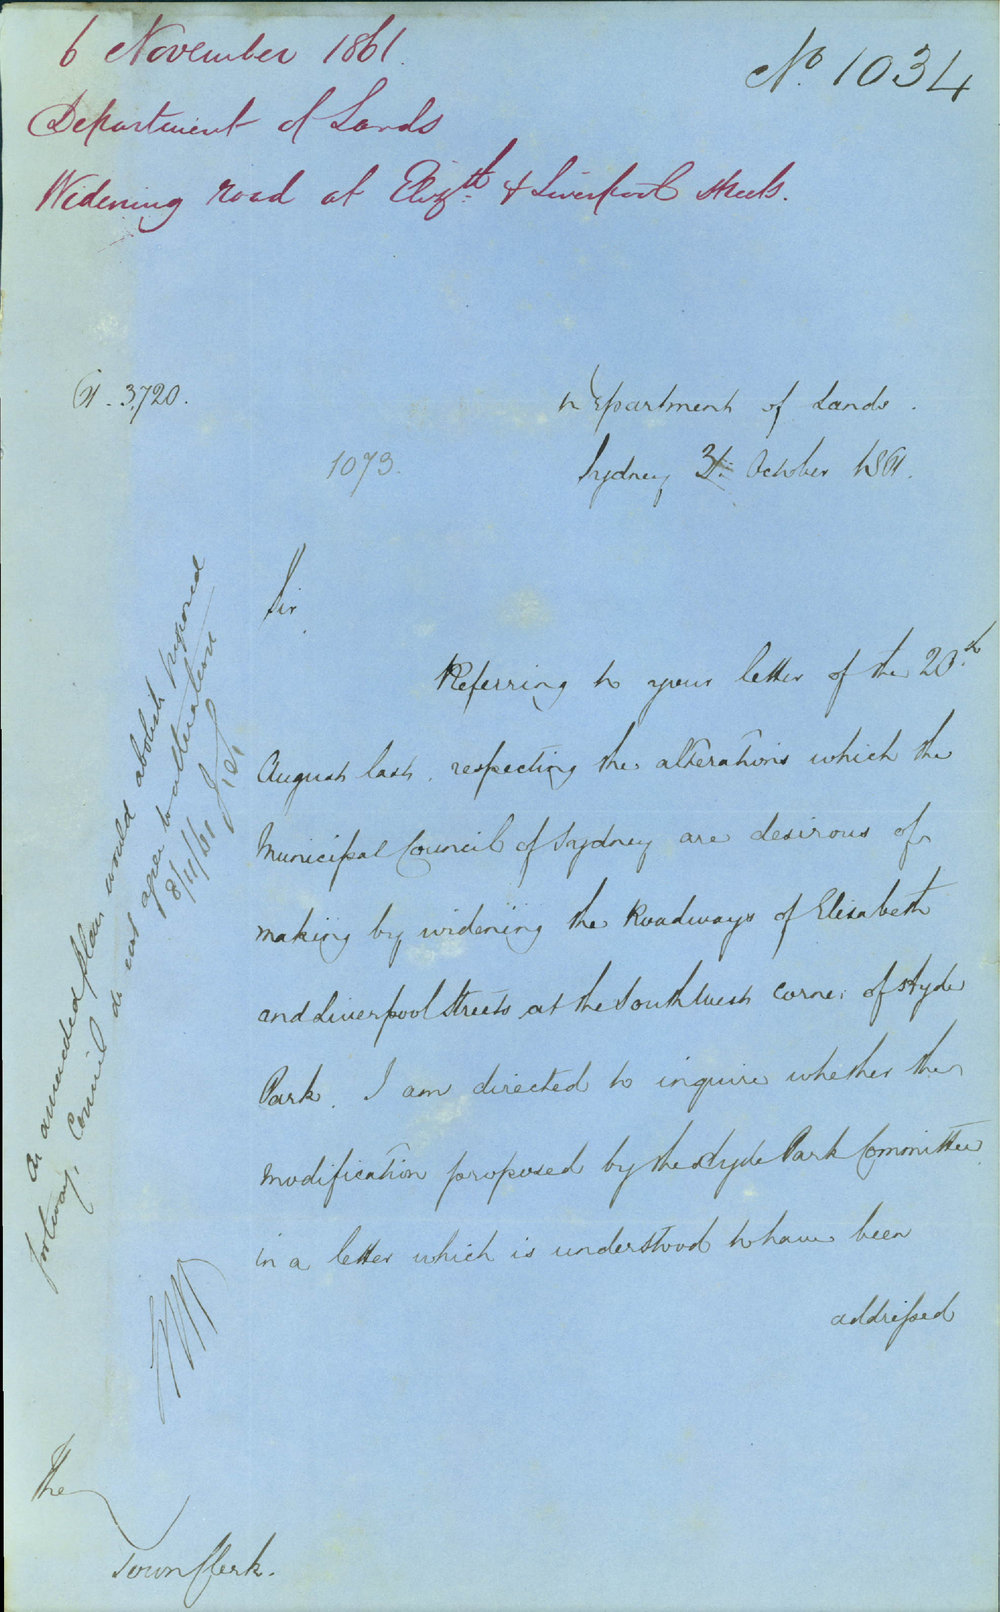 6 November 1861.
No. 1034
Department of Lands
Widening road at Elizth. & Liverpool Streets.
61.3,720.
Department of Lands.
1073.
Sydney 31st October 1861.
Sir,
Referring to your letter of the 20th.
August last, respecting the alterations which the
Municipal Council of Sydney are desirous of
making by widening the Roadways of Elizabeth
and Liverpool Streets at the South West corner of Hyde
Park. I am directed to inquire whether the
modification proposed by the Hyde Park Committee
in a letter which is understood to have been
addressed
An amended plan would abolish proposed
footway, Council do not agree to alteration
8/11/61
The
Town Clerk.